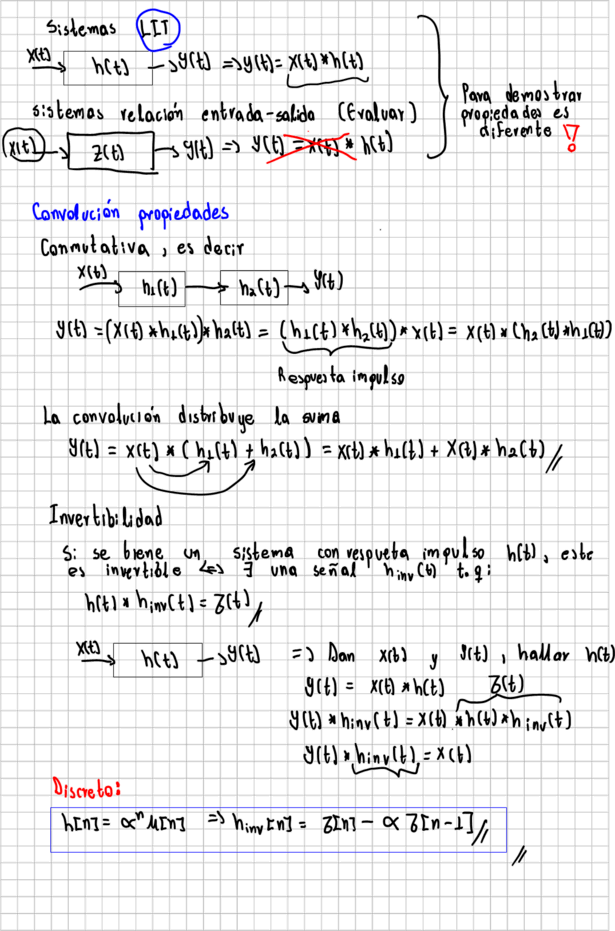 Sistemas LIT
x(t) h(t) y(t) => y(t) = x(t) * h(t)
sistemas relación entrada-salida (Evaluar)
x(t) z(t) y(t) => y(t) = x(t) * h(t)
Para demostrar
propiedades es
diferente !
Convolución propiedades
Conmutativa, es decir
x(t) h₁(t) h₂(t) y(t)
y(t) = (x(t) * h₁(t)) * h₂(t) = (h₁(t) * h₂(t)) * x(t) = x(t) * (h₂(t) * h₁(t))
Respuesta impulso
La convolución distribuye la suma
y(t) = x(t) * (h₁(t) + h₂(t)) = x(t) * h₁(t) + x(t) * h₂(t) //
Invertibilidad
Si se tiene un sistema con respueta impulso h(t), este
es invertible <=> ∃ una señal hinv(t) t.q:
h(t) * hinv(t) = δ(t) //
x(t) h(t) y(t) => Dan x(t) y y(t), hallar h(t)
y(t) = x(t) * h(t) δ(t)
y(t) * hinv(t) = x(t) * h(t) * hinv(t)
y(t) * hinv(t) = x(t)
Discreto:
h[n] = αⁿ μ[n] => hinv[n] = δ[n] - α δ[n-1] //
//